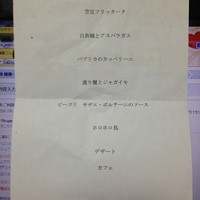 空豆フリッタータ
白魚鯛とアスパラガス
パプリカのカッペリーニ
渡り蟹とジャガイモ
ビーゴリ サザエ・ポルチーニのソース
ホロホロ鳥
デザート
カフェ